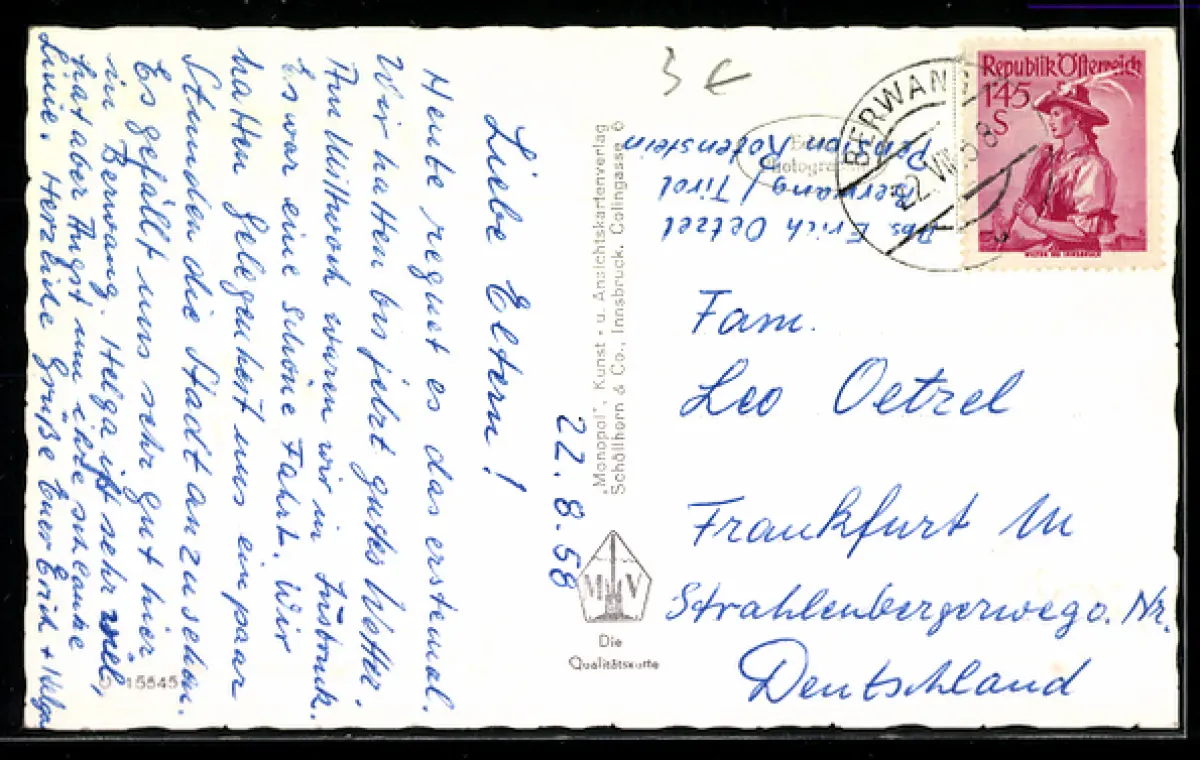 22.8.58
Liebe Eltern!
Heute regnet es das erstemal.
Wir hatten bis jetzt gutes Wetter.
Am Mittwoch waren wir in Insbruck.
Es war eine schöne Fahrt. Wir
hatten Gelegenheit uns ein paar
Stunden die Stadt anzusehen.
Es gefällt uns sehr gut hier
in Berwang. Helga ißt sehr viel,
hat aber Angst um die schlanke
Linie. Herzliche Grüße Euer Erich + Helga
15845
"Monopol", Kunst- u. Ansichtskartenverlag
Schöllhorn & Co., Innsbruck, Colingasse
M V
Die
Qualitätskarte
3 €
Abs. Erich Oetzel
Berwang / Tirol
Pension Rotenstein
BERWANG
22.VIII.58
Republik Österreich
1'45
S
Fam.
Leo Oetzel
Frankfurt M
Strahlenbergerwego. Nr.
Deutschland